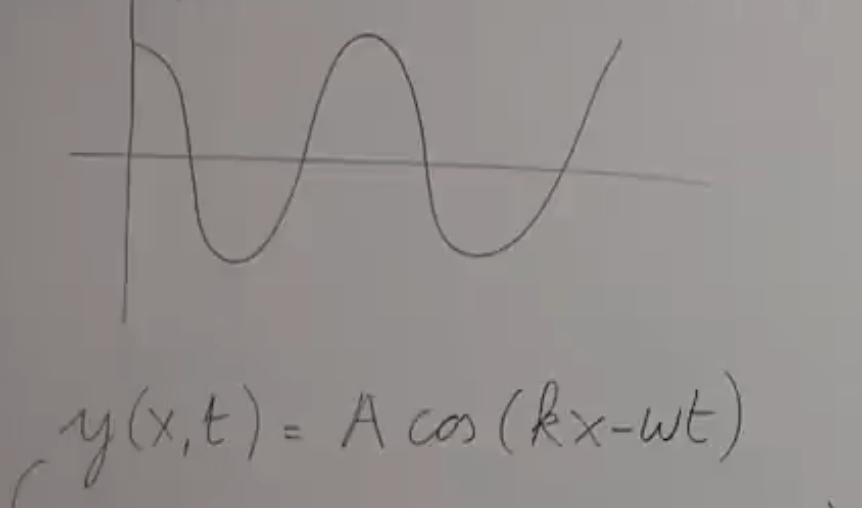 y(x,t) = A cos(kx-wt)